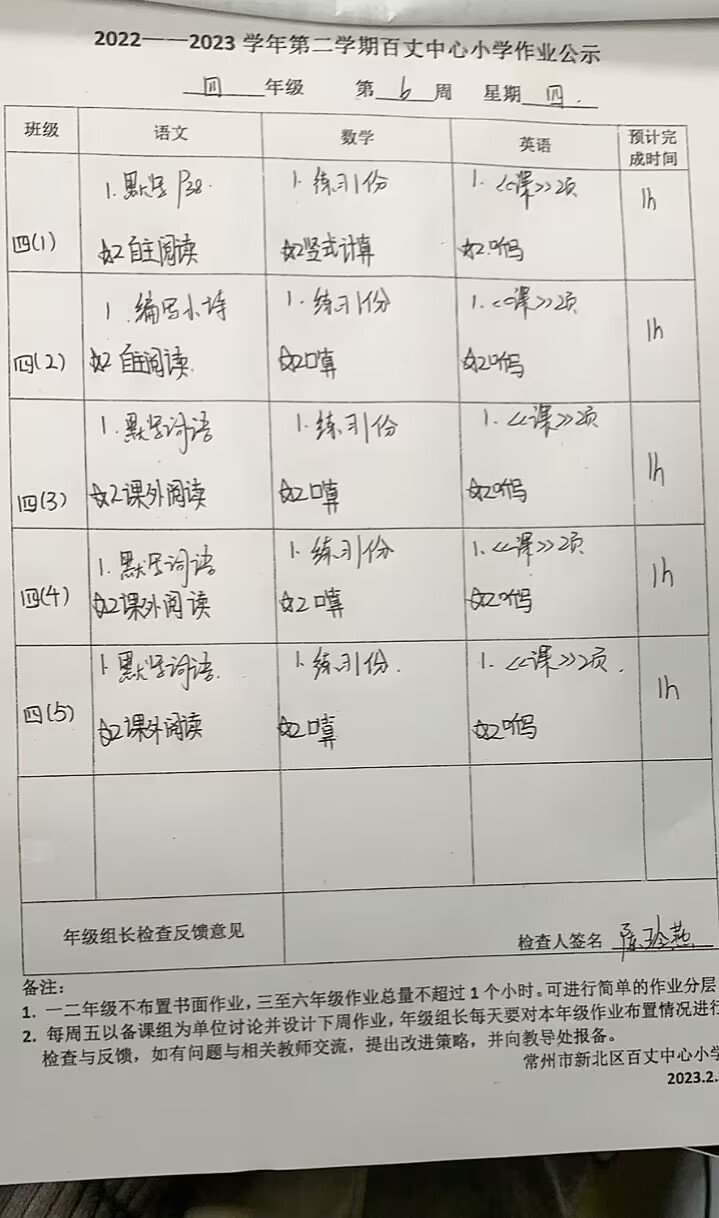 2022——2023 学年第二学期百丈中心小学作业公示
四 年级 第 6 周 星期 四.
班级 语文 数学 英语 预计完成时间
四(1) 1.默写 P38. 1.练习1份 1.《课》2项 1h
☆2 自主阅读 ☆2竖式计算 ☆2.
四(2) 1.编写小诗 1.练习1份 1.《课》2项 1h
☆2 自主阅读. ☆2口算 ☆2
四(3) 1.默写词语 1.练习1份 1.《课》2项 1h
☆2课外阅读 ☆2口算 ☆2
四(4) 1.默写词语 1.练习1份 1.《课》2项 1h
☆2课外阅读 ☆2口算 ☆2
四(5) 1.默写词语. 1.练习1份. 1.《课》2项. 1h
☆2课外阅读 ☆2口算 ☆2
年级组长检查反馈意见 检查人签名
备注:
1. 一二年级不布置书面作业，三至六年级作业总量不超过 1 个小时。可进行简单的作业分层
2. 每周五以备课组为单位讨论并设计下周作业，年级组长每天要对本年级作业布置情况进行
检查与反馈，如有问题与相关教师交流，提出改进策略，并向教导处报备。
常州市新北区百丈中心小学
2023.2.